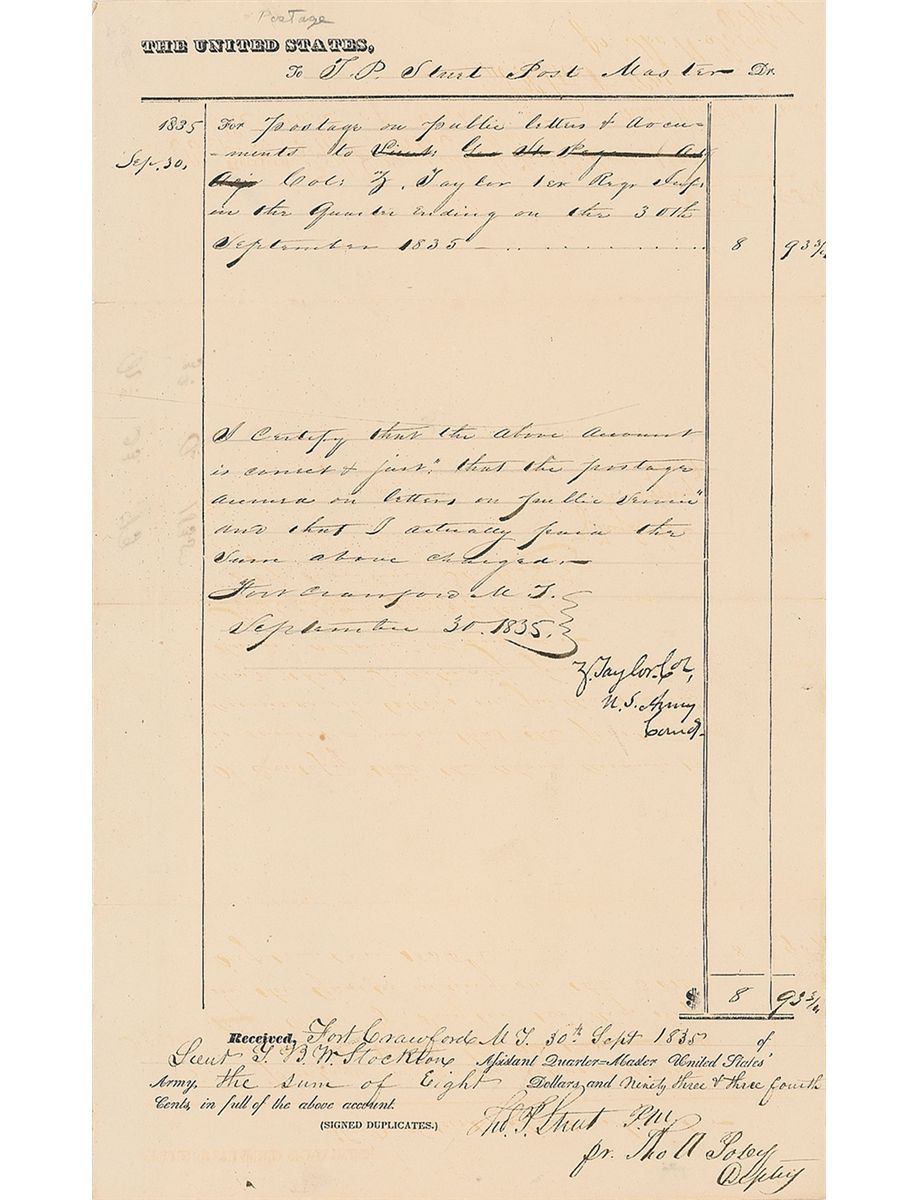 Postage
THE UNITED STATES,
To T. P. Street Post Master Dr.
1835 For postage on public letters & docu-
Sep. 30, -ments to Lieut: Geo W.
Col: Z. Taylor 1er Regr Inf:
in the Quarter Ending on the 30th
September 1835 8 93 3/4
I Certify that the above account
is correct & just." that the postage
accrued on letters on public service"
and that I actually paid the
Sum above charged.—
Fort Crawford M T.
September 30. 1835.
Z. Taylor. Col,
U. S. Army
Comdg.
$ 8 93 3/4
Received, Fort Crawford M T. 30th Sept 1835 of
Lieut T. B. W Stockton Assistant Quarter=Master United States'
Army, the sum of Eight Dollars, and Ninety three & three fourth
Cents, in full of the above account.
(SIGNED DUPLICATES.) Tho. P. Street P.M
pr. Tho A
Deputy